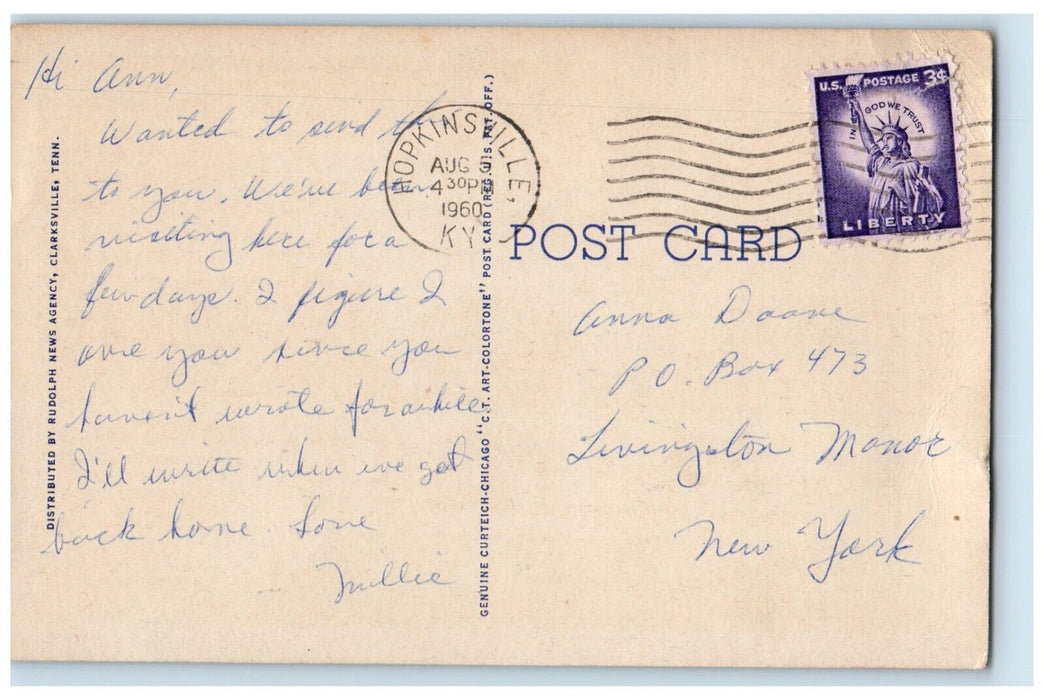 Hi Ann,
Wanted to send th
to you. We've been
visiting here for a
few days. I figure I
owe you since you
haven't wrote for awhile
I'll write when we get
back home. Love
Millie
DISTRIBUTED BY RUDOLPH NEWS AGENCY, CLARKSVILLE, TENN.
GENUINE CURTEICH-CHICAGO "C.T. ART-COLORTONE" POST CARD (REG. U.S. PAT. OFF.)
HOPKINSVILLE,
AUG
4 30P
1960
KY
U.S. POSTAGE 3¢
IN GOD WE TRUST
LIBERTY
POST CARD
Anna Doane
P O. Box 473
Livingston Manor
New York